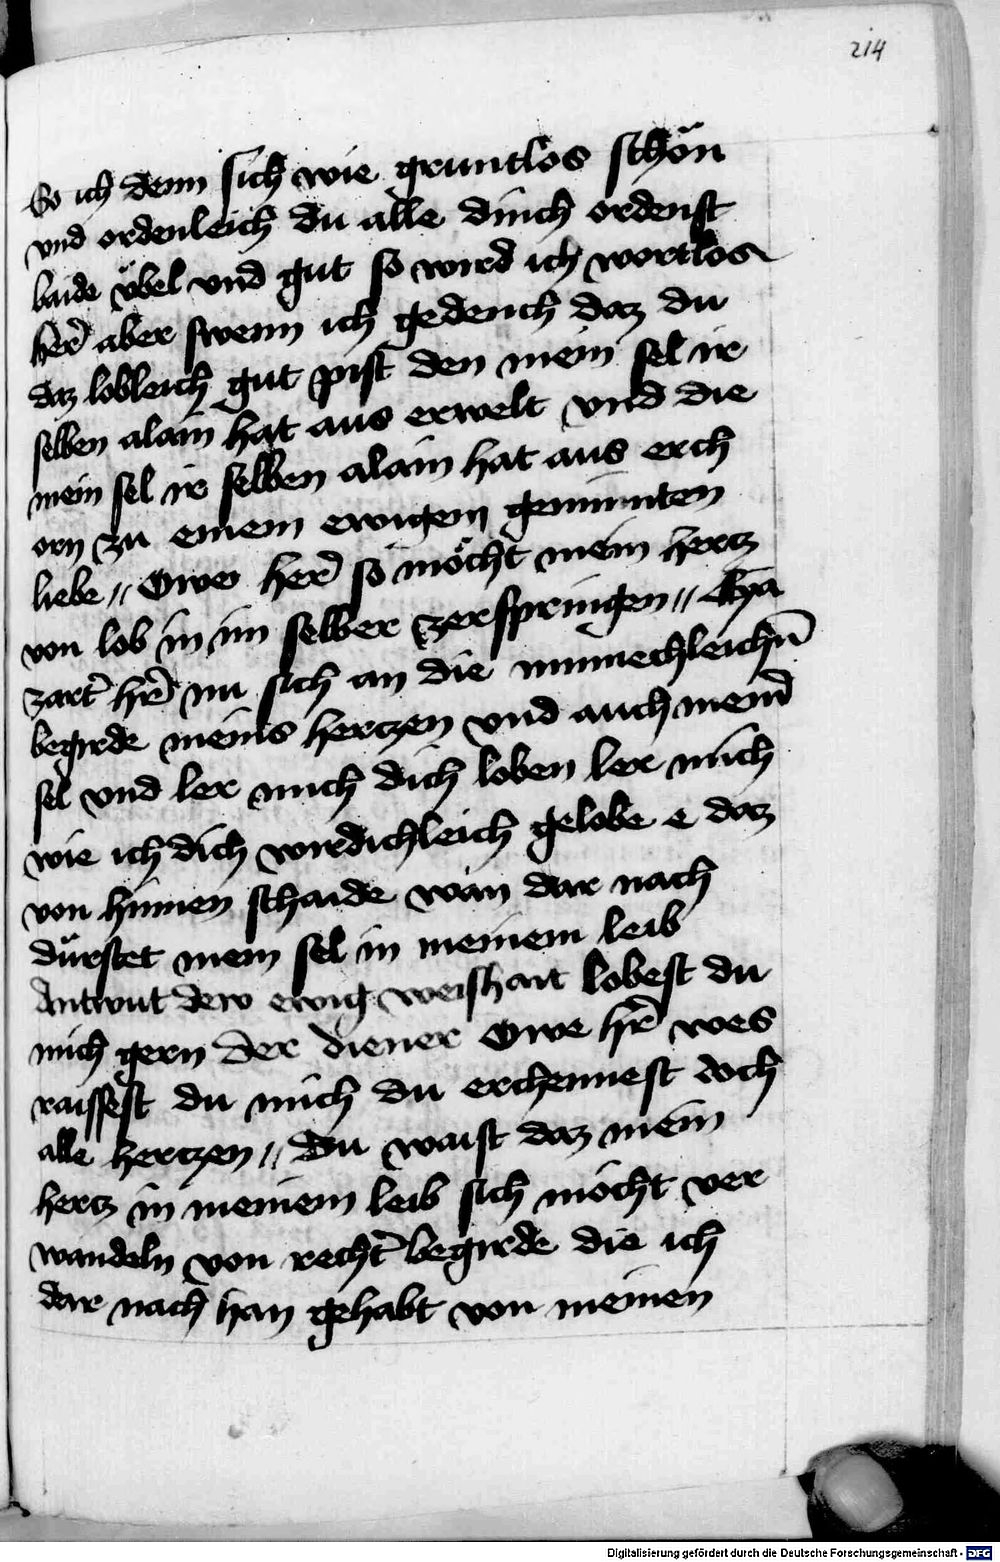 214
So ich denn sich wie gruntlos schön
vnd ordenleich du alle dinch ordenst
baide vbel vnd gut so wird ich wortlos
her͛ aber swenn ich gedench daz du
daz lobleich gut pist den mein sel ir
selben alain hat aus erwelt vnd die
mein sel ir selben alain hat aus erch
orn zu einem ewigem geminnten
liebe // Owe her͛ so möcht mein hertz
von lob in im selber zerspringen // Eya
zart͛ hr͛ nu sich an die inniechleichn̄
begirde meins hertzen vnd auch mein͛
sel vnd ler mich dich loben ler mich
wie ich dich wirdichleich gelobe e daz
von hinnen schaide wan dar nach
dürstet mein sel in meinem leib
Antwut dew ewig weishait lobest du
mich gern Der diener Owe hr͛ wes
raissest du mich du erchennest doch
alle hertzen // Du waist daz mein
hertz in meinem leib sich möcht ver
wandeln von recht͛ begirde die ich
dar nach han gehabt von meinen
Digitalisierung gefördert durch die Deutsche Forschungsgemeinschaft - DFG